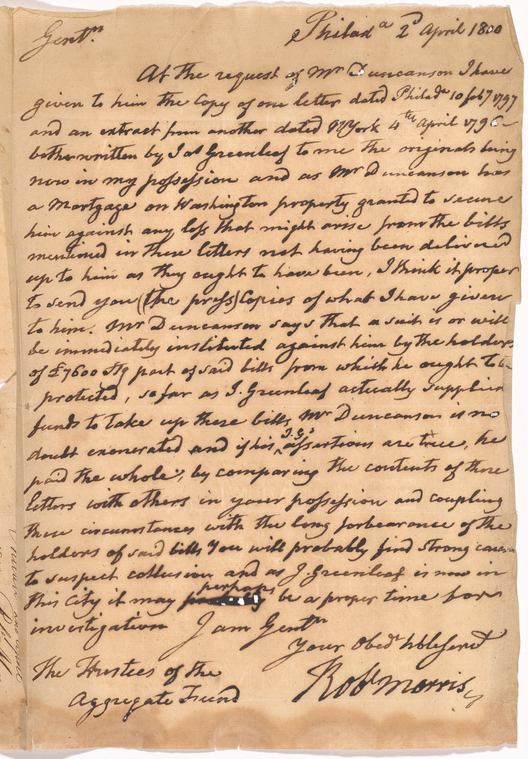 Gentn
Philada 2d April 1800
At the request of Mr Duncanson I have
given to him the Copy of one letter dated Philada 10 feby 1797
and an extract from another dated NYork 4th April 1796
both written by Jas Greenleaf to me the originals being
now in my possession and as Mr Duncanson has
a Mortgage on Washington property granted to secure
him against any loss that might arise from the bills
mentioned in these letters not having been delivered
up to him as they ought to have been, I think it proper
to send you (the press) Copies of what I have given
to him. Mr Duncanson says that a suit is or will
be immediately instituted against him by the holders
of £7600 Stg part of said bills from which he ought to be
protected, so far as J. Greenleaf actually supplied
funds to take up these bills Mr Duncanson is no
doubt exonerated and if his J.G's assertions are true, he
paid the whole; by comparing the contents of those
letters with others in your possession and coupling
these circumstances with the long forbearance of the
holders of said bills You will probably find strong cause
to suspect collusion and as J Greenleaf is now in
this City it may perhaps be a proper time for
investigation I am Gentn
Your Obedt hble servt
Robt Morris
The Trustees of the
Aggregate Fund